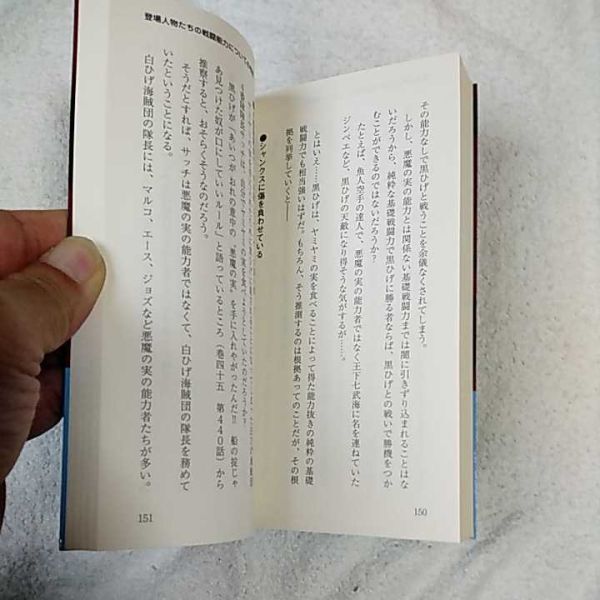 その能力なしで黒ひげと戦うことを余儀なくされてしまう。
しかし、悪魔の実の能力とは関係ない基礎戦闘力までは闇に引きずり込まれることはな
いだろうから、純粋な基礎戦闘力で黒ひげに勝る者ならば、黒ひげとの戦いで勝機をつか
むことができるのではないだろうか？
たとえば、魚人空手の達人で、悪魔の実の能力者ではなく王下七武海に名を連ねていた
ジンベエなど、黒ひげの天敵になり得そうな気がするが……。
とはいえ……黒ひげは、ヤミヤミの実を食べることによって得た能力抜きの純粋の基礎
戦闘力でも相当強いはずだ。もちろん、そう推測するのは根拠あってのことだが、その根
拠を列挙していくと――
●シャンクスに傷を負わせている
150
登場人物たちの戦闘能力について
黒ひげが「あいつがおれの意中の〝悪魔の実〟を手に入れやがったんだ!! 船の掟じゃ
あ見つけた奴が口にしていいルール」と語っているところ（巻四十五 第440話）から
推察すると、おそらくそうなのだろう。
そうだとすれば、サッチは悪魔の実の能力者ではなくて、白ひげ海賊団の隊長を務めて
いたということになる。
白ひげ海賊団の隊長には、マルコ、エース、ジョズなど悪魔の実の能力者たちが多い。
151